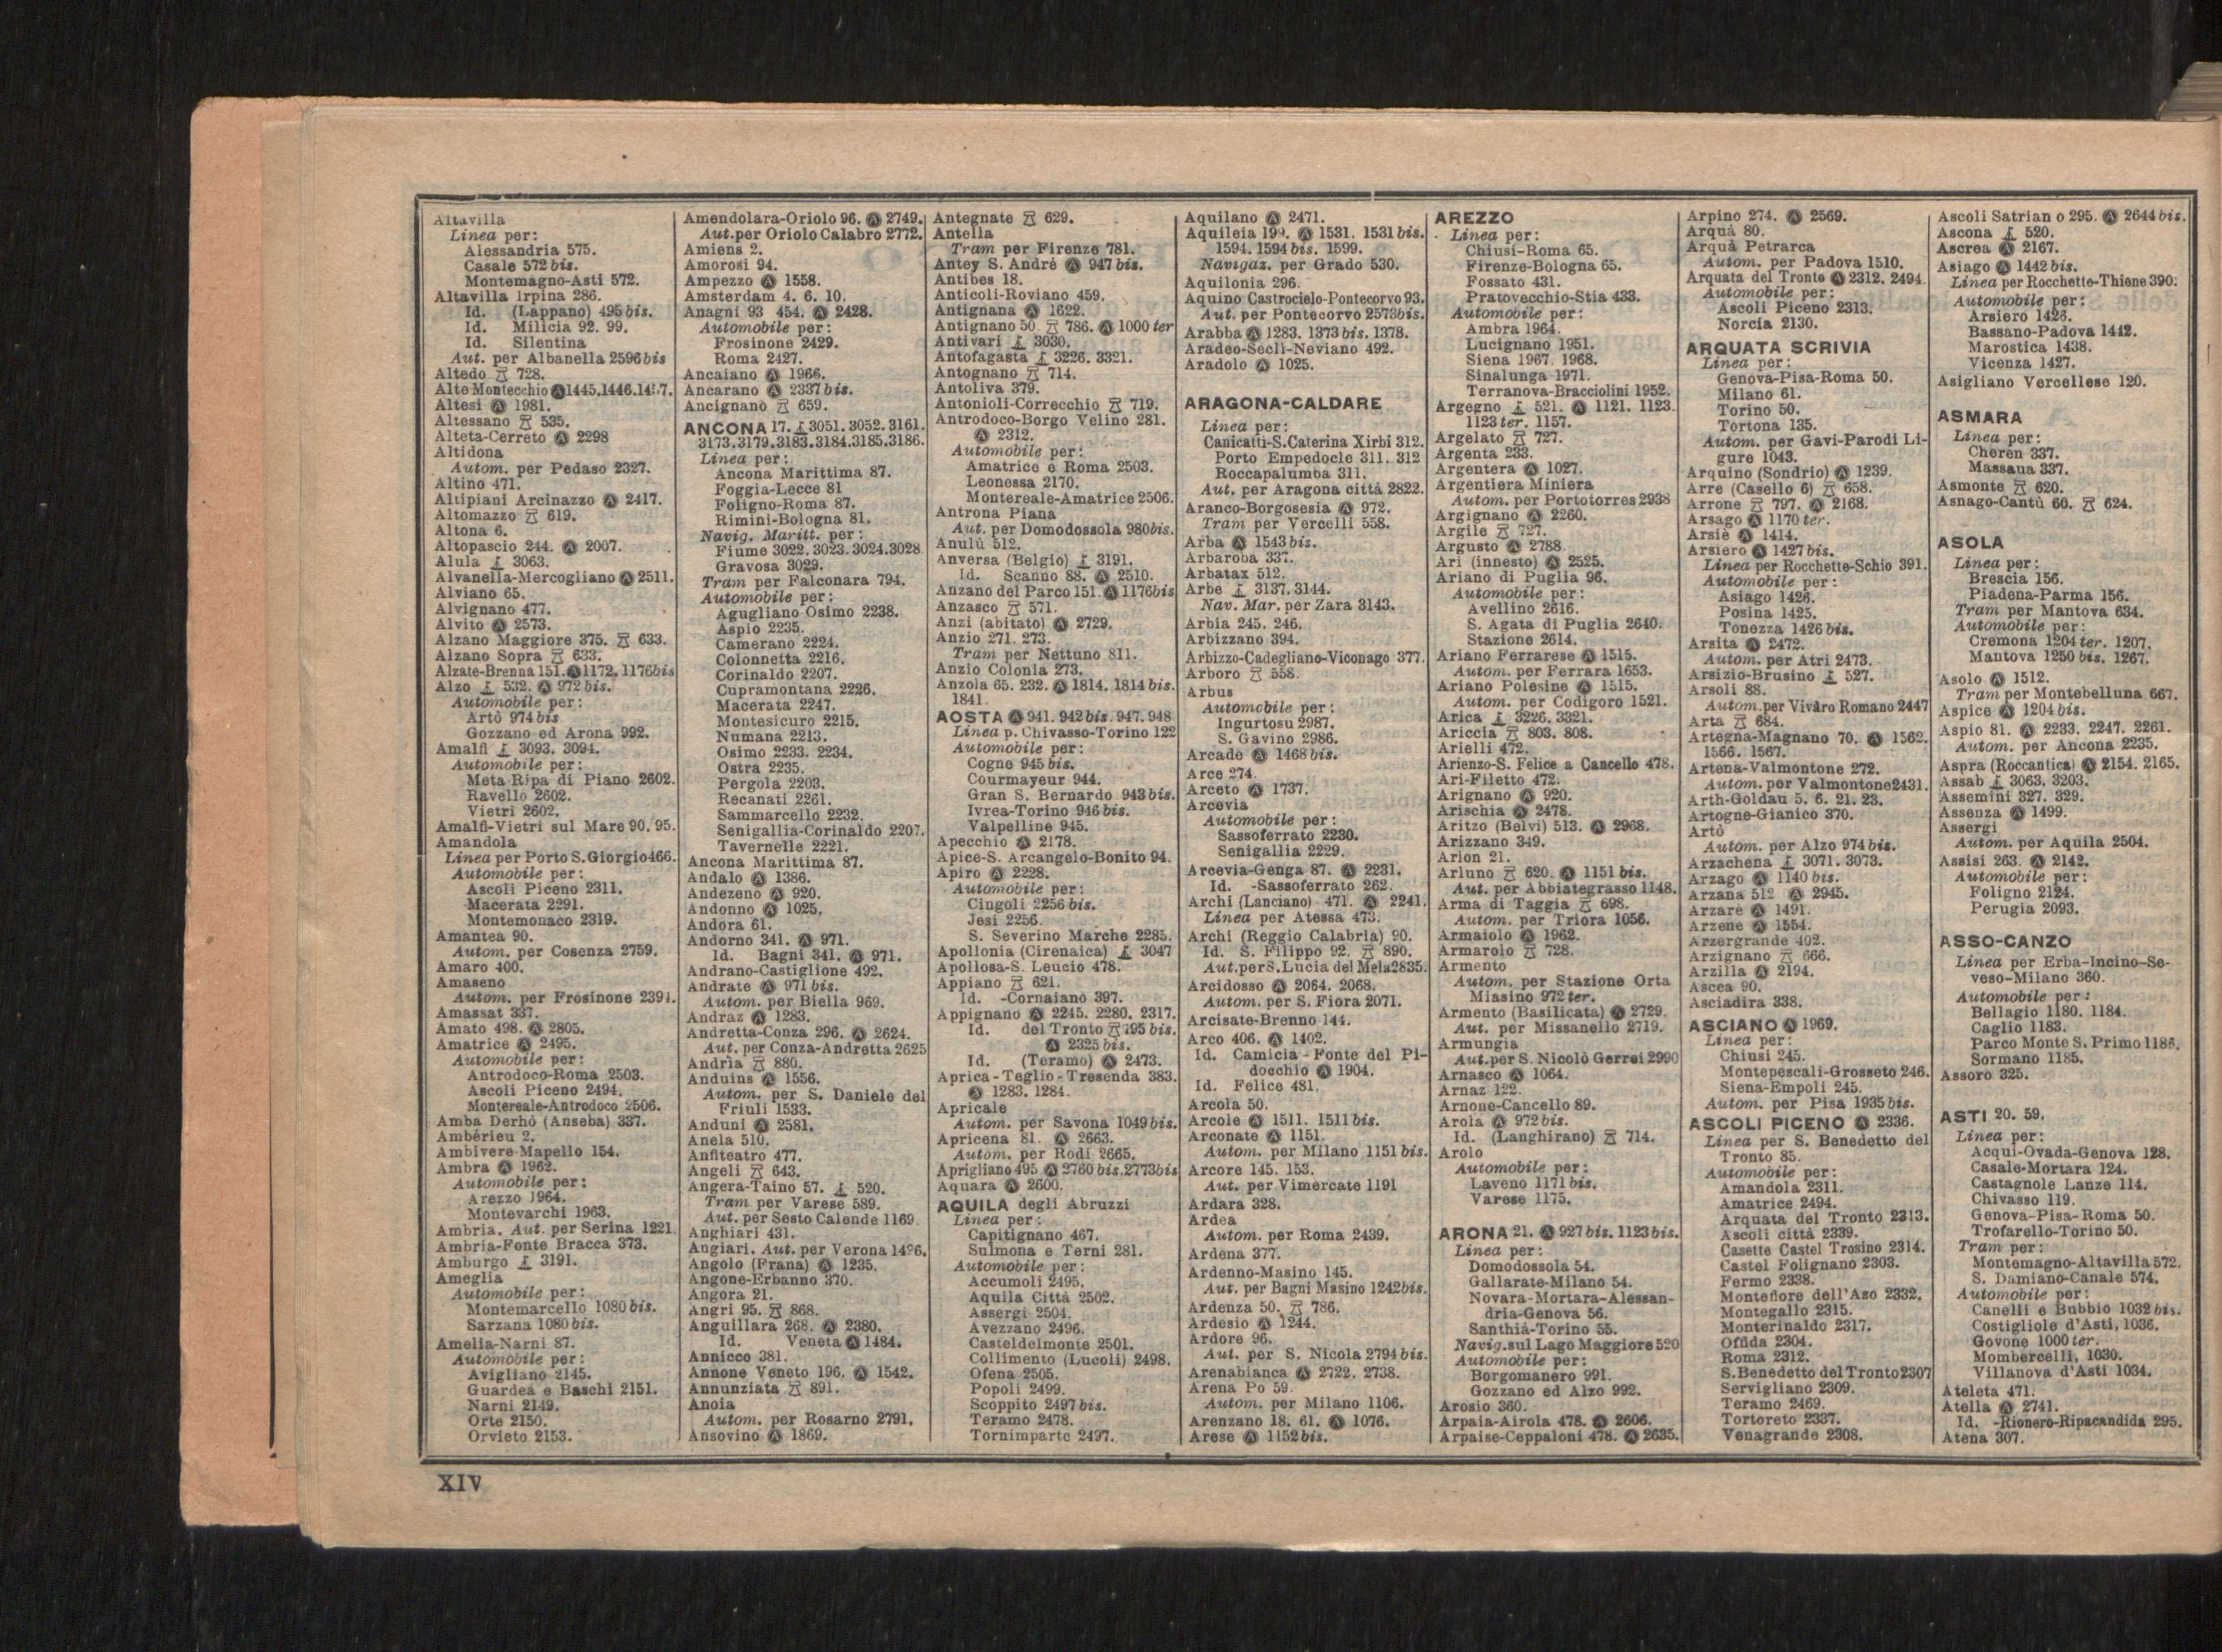 Altavilla
Linea per:
Alessandria 575.
Casale 572 bis.
Montemagno-Asti 572.
Altavilla Irpina 286.
Id. (Lappano) 495 bis.
Id. Milicia 92. 99.
Id. Silentina
Aut. per Albanella 2596 bis
Altedo 728.
Alte Montecchio Ⓐ 1445. 1446.
Altesi Ⓐ 1981.
Altessano 535.
Alteta-Cerreto Ⓐ 2298
Altidona
Autom. per Pedaso 2327.
Altino 471.
Altipiani Arcinazzo Ⓐ 2417.
Altomazzo 619.
Altona 6.
Altopascio 244. Ⓐ 2007.
Alula 3063.
Alvanella-Mercogliano Ⓐ 2511.
Alviano 65.
Alvignano 477.
Alvito Ⓐ 2573.
Alzano Maggiore 375. 633.
Alzano Sopra 633.
Alzate-Brenna 151. Ⓐ 1172. 1176 bis
Alzo 532. Ⓐ 972 bis.
Automobile per:
Artò 974 bis
Gozzano ed Arona 992.
Amalfi 3093. 3094.
Automobile per:
Meta Ripa di Piano 2602.
Ravello 2602.
Vietri 2602.
Amalfi-Vietri sul Mare 90. 95.
Amandola
Linea per Porto S. Giorgio 466.
Automobile per:
Ascoli Piceno 2311.
Macerata 2291.
Montemonaco 2319.
Amantea 90.
Autom. per Cosenza 2759.
Amaro 400.
Amaseno
Autom. per Frosinone 2391.
Amassat 337.
Amato 498. Ⓐ 2805.
Amatrice Ⓐ 2495.
Automobile per:
Antrodoco-Roma 2503.
Ascoli Piceno 2494.
Montereale-Antrodoco 2506.
Amba Derhò (Anseba) 337.
Ambérieu 2.
Ambivere-Mapello 154.
Ambra Ⓐ 1962.
Automobile per:
Arezzo 1964.
Montevarchi 1963.
Ambria. Aut. per Serina 1221
Ambria-Fonte Bracca 373.
Amburgo 3191.
Ameglia
Automobile per:
Montemarcello 1080 bis.
Sarzana 1080 bis.
Amelia-Narni 87.
Automobile per:
Avigliano 2145.
Guardea e Baschi 2151.
Narni 2149.
Orte 2150.
Orvieto 2153.
Amendolara-Oriolo 96. Ⓐ 2749.
Aut. per Oriolo Calabro 2772.
Amiens 2.
Amorosi 94.
Ampezzo Ⓐ 1558.
Amsterdam 4. 6. 10.
Anagni 93 454. Ⓐ 2428.
Automobile per:
Frosinone 2429.
Roma 2427.
Ancaiano Ⓐ 1966.
Ancarano Ⓐ 2337 bis.
Ancignano 659.
ANCONA 17. 3051. 3052. 3161.
3173. 3179. 3183. 3184. 3185. 3186.
Linea per:
Ancona Marittima 87.
Foggia-Lecce 81
Foligno-Roma 87.
Rimini-Bologna 81.
Navig. Maritt. per:
Fiume 3022. 3023. 3024. 3028
Gravosa 3029.
Tram per Falconara 794.
Automobile per:
Agugliano Osimo 2238.
Aspio 2235.
Camerano 2224.
Colonnetta 2216.
Corinaldo 2207.
Cupramontana 2226.
Macerata 2247.
Montesicuro 2215.
Numana 2213.
Osimo 2233. 2234.
Ostra 2235.
Pergola 2203.
Recanati 2261.
Sammarcello 2232.
Senigallia-Corinaldo 2207.
Tavernelle 2221.
Ancona Marittima 87.
Andalo Ⓐ 1386.
Andezeno Ⓐ 920.
Andonno Ⓐ 1025.
Andora 61.
Andorno 341. Ⓐ 971.
Id. Bagni 341. Ⓐ 971.
Andrano-Castiglione 492.
Andrate Ⓐ 971 bis.
Autom. per Biella 969.
Andraz Ⓐ 1283.
Andretta-Conza 296. Ⓐ 2624.
Aut. per Conza-Andretta 2625
Andria 880.
Anduins Ⓐ 1556.
Autom. per S. Daniele del
Friuli 1533.
Anduni Ⓐ 2581.
Anela 510.
Anfiteatro 477.
Angeli 643.
Angera-Taino 57. 520.
Tram per Varese 589.
Aut. per Sesto Calende 1169.
Anghiari 431.
Angiari. Aut. per Verona 1496.
Angolo (Frana) Ⓐ 1235.
Angone-Erbanno 370.
Angora 21.
Angri 95. 868.
Anguillara 268. Ⓐ 2380.
Id. Veneta Ⓐ 1484.
Annicco 381.
Annone Veneto 196. Ⓐ 1542.
Annunziata 891.
Anoia
Autom. per Rosarno 2791.
Ansovino Ⓐ 1869.
Antegnate 629.
Antella
Tram per Firenze 781.
Antey S. André Ⓐ 947 bis.
Antibes 18.
Anticoli-Roviano 459.
Antignana Ⓐ 1622.
Antignano 50. 786. Ⓐ 1000 ter
Antivari 3030.
Antofagasta 3226. 3321.
Antognano 714.
Antoliva 379.
Antonioli-Correcchio 719.
Antrodoco-Borgo Velino 281.
Ⓐ 2312.
Automobile per:
Amatrice e Roma 2503.
Leonessa 2170.
Montereale-Amatrice 2506.
Antrona Piana
Aut. per Domodossola 980 bis.
Anulù 512.
Anversa (Belgio) 3191.
Id. Scanno 88. Ⓐ 2510.
Anzano del Parco 151. Ⓐ 1176 bis
Anzasco 571.
Anzi (abitato) Ⓐ 2729.
Anzio 271. 273.
Tram per Nettuno 811.
Anzio Colonia 273.
Anzola 65. 232. Ⓐ 1814. 1814 bis.
1841.
AOSTA Ⓐ 941. 942 bis. 947. 948
Linea p. Chivasso-Torino 122
Automobile per:
Cogne 945 bis.
Courmayeur 944.
Gran S. Bernardo 943 bis.
Ivrea-Torino 946 bis.
Valpelline 945.
Apecchio Ⓐ 2178.
Apice-S. Arcangelo-Bonito 94.
Apiro Ⓐ 2228.
Automobile per:
Cingoli 2256 bis.
Jesi 2256.
S. Severino Marche 2285.
Apollonia (Cirenaica) 3047
Apollosa-S. Leucio 478.
Appiano 621.
Id. -Cornaiano 397.
Appignano Ⓐ 2245. 2280. 2317.
Id. del Tronto 795 bis.
Ⓐ 2325 bis.
Id. (Teramo) Ⓐ 2473.
Aprica-Teglio-Tresenda 383.
Ⓐ 1283. 1284.
Apricale
Autom. per Savona 1049 bis.
Apricena 81. Ⓐ 2663.
Autom. per Rodi 2665.
Aprigliano 495 Ⓐ 2760 bis. 2773 bis
Aquara Ⓐ 2600.
AQUILA degli Abruzzi
Linea per:
Capitignano 467.
Sulmona e Terni 281.
Automobile per:
Accumoli 2495.
Aquila Città 2502.
Assergi 2504.
Avezzano 2496.
Casteldelmonte 2501.
Collimento (Lucoli) 2498.
Ofena 2505.
Popoli 2499.
Scoppito 2497 bis.
Teramo 2478.
Tornimparte 2497.
Aquilano Ⓐ 2471.
Aquileia Ⓐ 1531. 1531 bis.
1594. 1594 bis. 1599.
Navigaz. per Grado 530.
Aquilonia 296.
Aquino Castrocielo-Pontecorvo 93.
Aut. per Pontecorvo 2573 bis.
Arabba Ⓐ 1283. 1373 bis. 1378.
Aradeo-Seclì-Neviano 492.
Aradolo Ⓐ 1025.
ARAGONA-CALDARE
Linea per:
Canicattì-S. Caterina Xirbi 312.
Porto Empedocle 311. 312
Roccapalumba 311.
Aut. per Aragona città 2822.
Aranco-Borgosesia Ⓐ 972.
Tram per Vercelli 558.
Arba Ⓐ 1543 bis.
Arbaroba 337.
Arbatax 512.
Arbe 3137. 3144.
Nav. Mar. per Zara 3143.
Arbia 245. 246.
Arbizzano 394.
Arbizzo-Cadegliano-Viconago 377.
Arboro 558.
Arbus
Automobile per:
Ingurtosu 2987.
S. Gavino 2986.
Arcade Ⓐ 1468 bis.
Arce 274.
Arceto Ⓐ 1737.
Arcevia
Automobile per:
Sassoferrato 2230.
Senigallia 2229.
Arcevia-Genga 87. Ⓐ 2231.
Id. -Sassoferrato 262.
Archi (Lanciano) 471. Ⓐ 2241.
Linea per Atessa 473.
Archi (Reggio Calabria) 90.
Id. S. Filippo 92. 890.
Aut. per S. Lucia del Mela 2835.
Arcidosso Ⓐ 2064. 2068.
Autom. per S. Fiora 2071.
Arcisate-Brenno 144.
Arco 406. Ⓐ 1402.
Id. Camicia-Fonte del Pi-
docchio Ⓐ 1904.
Id. Felice 481.
Arcola 50.
Arcole Ⓐ 1511. 1511 bis.
Arconate Ⓐ 1151.
Autom. per Milano 1151 bis.
Arcore 145. 153.
Aut. per Vimercate 1191
Ardara 328.
Ardea
Autom. per Roma 2439.
Ardena 377.
Ardenno-Masino 145.
Aut. per Bagni Masino 1242 bis.
Ardenza 50. 786.
Ardesio Ⓐ 1244.
Ardore 96.
Aut. per S. Nicola 2794 bis.
Arenabianca Ⓐ 2722. 2738.
Arena Po 59.
Autom. per Milano 1106.
Arenzano 18. 61. Ⓐ 1076.
Arese Ⓐ 1152 bis.
AREZZO
Linea per:
Chiusi-Roma 65.
Firenze-Bologna 65.
Fossato 431.
Pratovecchio-Stia 433.
Automobile per:
Ambra 1964.
Lucignano 1951.
Siena 1967. 1968.
Sinalunga 1971.
Terranova-Bracciolini 1952.
Argegno 521. Ⓐ 1121. 1123.
1123 ter. 1157.
Argelato 727.
Argenta 233.
Argentera Ⓐ 1027.
Argentiera Miniera
Autom. per Portotorres 2938
Argignano Ⓐ 2260.
Argile 727.
Argusto Ⓐ 2788
Ari (innesto) Ⓐ 2525.
Ariano di Puglia 96.
Automobile per:
Avellino 2616.
S. Agata di Puglia 2640.
Stazione 2614.
Ariano Ferrarese Ⓐ 1515.
Autom. per Ferrara 1653.
Ariano Polesine Ⓐ 1515.
Autom. per Codigoro 1521.
Arica 3226. 3321.
Ariccia 803. 808.
Arielli 472.
Arienzo-S. Felice a Cancello 478.
Ari-Filetto 472.
Arignano Ⓐ 920.
Arischia Ⓐ 2478.
Aritzo (Belvì) 513. Ⓐ 2968.
Arizzano 349.
Arlon 21.
Arluno 620. Ⓐ 1151 bis.
Aut. per Abbiategrasso 1148.
Arma di Taggia 698.
Autom. per Triora 1056.
Armaiolo Ⓐ 1962.
Armarolo 728.
Armento
Autom. per Stazione Orta
Miasino 972 ter.
Armento (Basilicata) Ⓐ 2729.
Aut. per Missanello 2719.
Armungia
Aut. per S. Nicolò Gerrei 2990
Arnasco Ⓐ 1064.
Arnaz 122.
Arnone-Cancello 89.
Arola Ⓐ 972 bis.
Id. (Langhirano) 714.
Arolo
Automobile per:
Laveno 1171 bis.
Varese 1175.
ARONA 21. Ⓐ 927 bis. 1123 bis.
Linea per:
Domodossola 54.
Gallarate-Milano 54.
Novara-Mortara-Alessan-
dria-Genova 56.
Santhià-Torino 55.
Navig. sul Lago Maggiore 520
Automobile per:
Borgomanero 991.
Gozzano ed Alzo 992.
Arosio 360.
Arpaia-Airola 478. Ⓐ 2606.
Arpaise-Ceppaloni 478. Ⓐ 2635.
Arpino 274. Ⓐ 2569.
Arquà 80.
Arquà Petrarca
Autom. per Padova 1510.
Arquata del Tronto Ⓐ 2312. 2494
Automobile per:
Ascoli Piceno 2313.
Norcia 2130.
ARQUATA SCRIVIA
Linea per:
Genova-Pisa-Roma 50.
Milano 61.
Torino 50.
Tortona 135.
Autom. per Gavi-Parodi Li-
gure 1043.
Arquino (Sondrio) Ⓐ 1239.
Arre (Casello 6) 658.
Arrone 797. Ⓐ 2168.
Arsago Ⓐ 1170 ter.
Arsiè Ⓐ 1414.
Arsiero Ⓐ 1427 bis.
Linea per Rocchette-Schio 391.
Automobile per:
Asiago 1426.
Posina 1425.
Tonezza 1426 bis.
Arsita Ⓐ 2472.
Autom. per Atri 2473.
Arsizio-Brusino 527.
Arsoli 88.
Autom. per Vivaro Romano 2447
Arta 684.
Artegna-Magnano 70. Ⓐ 1562.
1566. 1567.
Artena-Valmontone 272.
Autom. per Valmontone 2431.
Arth-Goldau 5. 6. 21. 23.
Artogne-Gianico 370.
Artò
Autom. per Alzo 974 bis.
Arzachena 3071. 3073.
Arzago Ⓐ 1140 bis.
Arzana 512 Ⓐ 2945.
Arzarè Ⓐ 1491.
Arzene Ⓐ 1554.
Arzergrande 402.
Arzignano 666.
Arzilla Ⓐ 2194.
Ascea 90.
Asciadira 338.
ASCIANO Ⓐ 1969.
Linea per:
Chiusi 245.
Montepescali-Grosseto 246.
Siena-Empoli 245.
Autom. per Pisa 1935 bis.
ASCOLI PICENO Ⓐ 2336.
Linea per S. Benedetto del
Tronto 85.
Automobile per:
Amandola 2311.
Amatrice 2494.
Arquata del Tronto 2313.
Ascoli città 2339.
Casette Castel Trosino 2314.
Castel Folignano 2303.
Fermo 2338.
Montefiore dell'Aso 2332.
Montegallo 2315.
Monterinaldo 2317.
Offida 2304.
Roma 2312.
S. Benedetto del Tronto 2307
Servigliano 2309.
Teramo 2469.
Tortoreto 2337.
Venagrande 2308.
Ascoli Satrian o 295. Ⓐ 2644 bis.
Ascona 520.
Ascrea Ⓐ 2167.
Asiago Ⓐ 1442 bis.
Linea per Rocchette-Thiene 390.
Automobile per:
Arsiero 1426.
Bassano-Padova 1442.
Marostica 1438.
Vicenza 1427.
Asigliano Vercellese 120.
ASMARA
Linea per:
Cheren 337.
Massaua 337.
Asmonte 620.
Asnago-Cantù 60. 624.
ASOLA
Linea per:
Brescia 156.
Piadena-Parma 156.
Tram per Mantova 634.
Automobile per:
Cremona 1204 ter. 1207.
Mantova 1250 bis. 1267.
Asolo Ⓐ 1512.
Tram per Montebelluna 667.
Aspice Ⓐ 1204 bis.
Aspio 81. Ⓐ 2233. 2247. 2261.
Autom. per Ancona 2235.
Aspra (Roccantica) Ⓐ 2154. 2165.
Assab 3063. 3203.
Assemini 327. 329.
Assenza Ⓐ 1499.
Assergi
Autom. per Aquila 2504.
Assisi 263. Ⓐ 2142.
Automobile per:
Foligno 2124.
Perugia 2093.
ASSO-CANZO
Linea per Erba-Incino-Se-
veso-Milano 360.
Automobile per:
Bellagio 1180. 1184.
Caglio 1183.
Parco Monte S. Primo 1186.
Sormano 1185.
Assoro 325.
ASTI 20. 59.
Linea per:
Acqui-Ovada-Genova 128.
Casale-Mortara 124.
Castagnole Lanze 114.
Chivasso 119.
Genova-Pisa-Roma 50.
Trofarello-Torino 50.
Tram per:
Montemagno-Altavilla 572.
S. Damiano-Canale 574.
Automobile per:
Canelli e Bubbio 1032 bis.
Costigliole d'Asti, 1036.
Govone 1000 ter.
Mombercelli, 1030.
Villanova d'Asti 1034.
Ateleta 471.
Atella Ⓐ 2741.
Id. -Rionero-Ripacandida 295.
Atena 307.
XIV